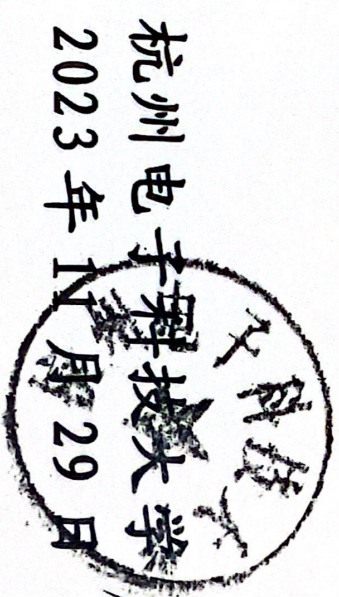 杭州电子科技大学
2023年11月29日
子科技大